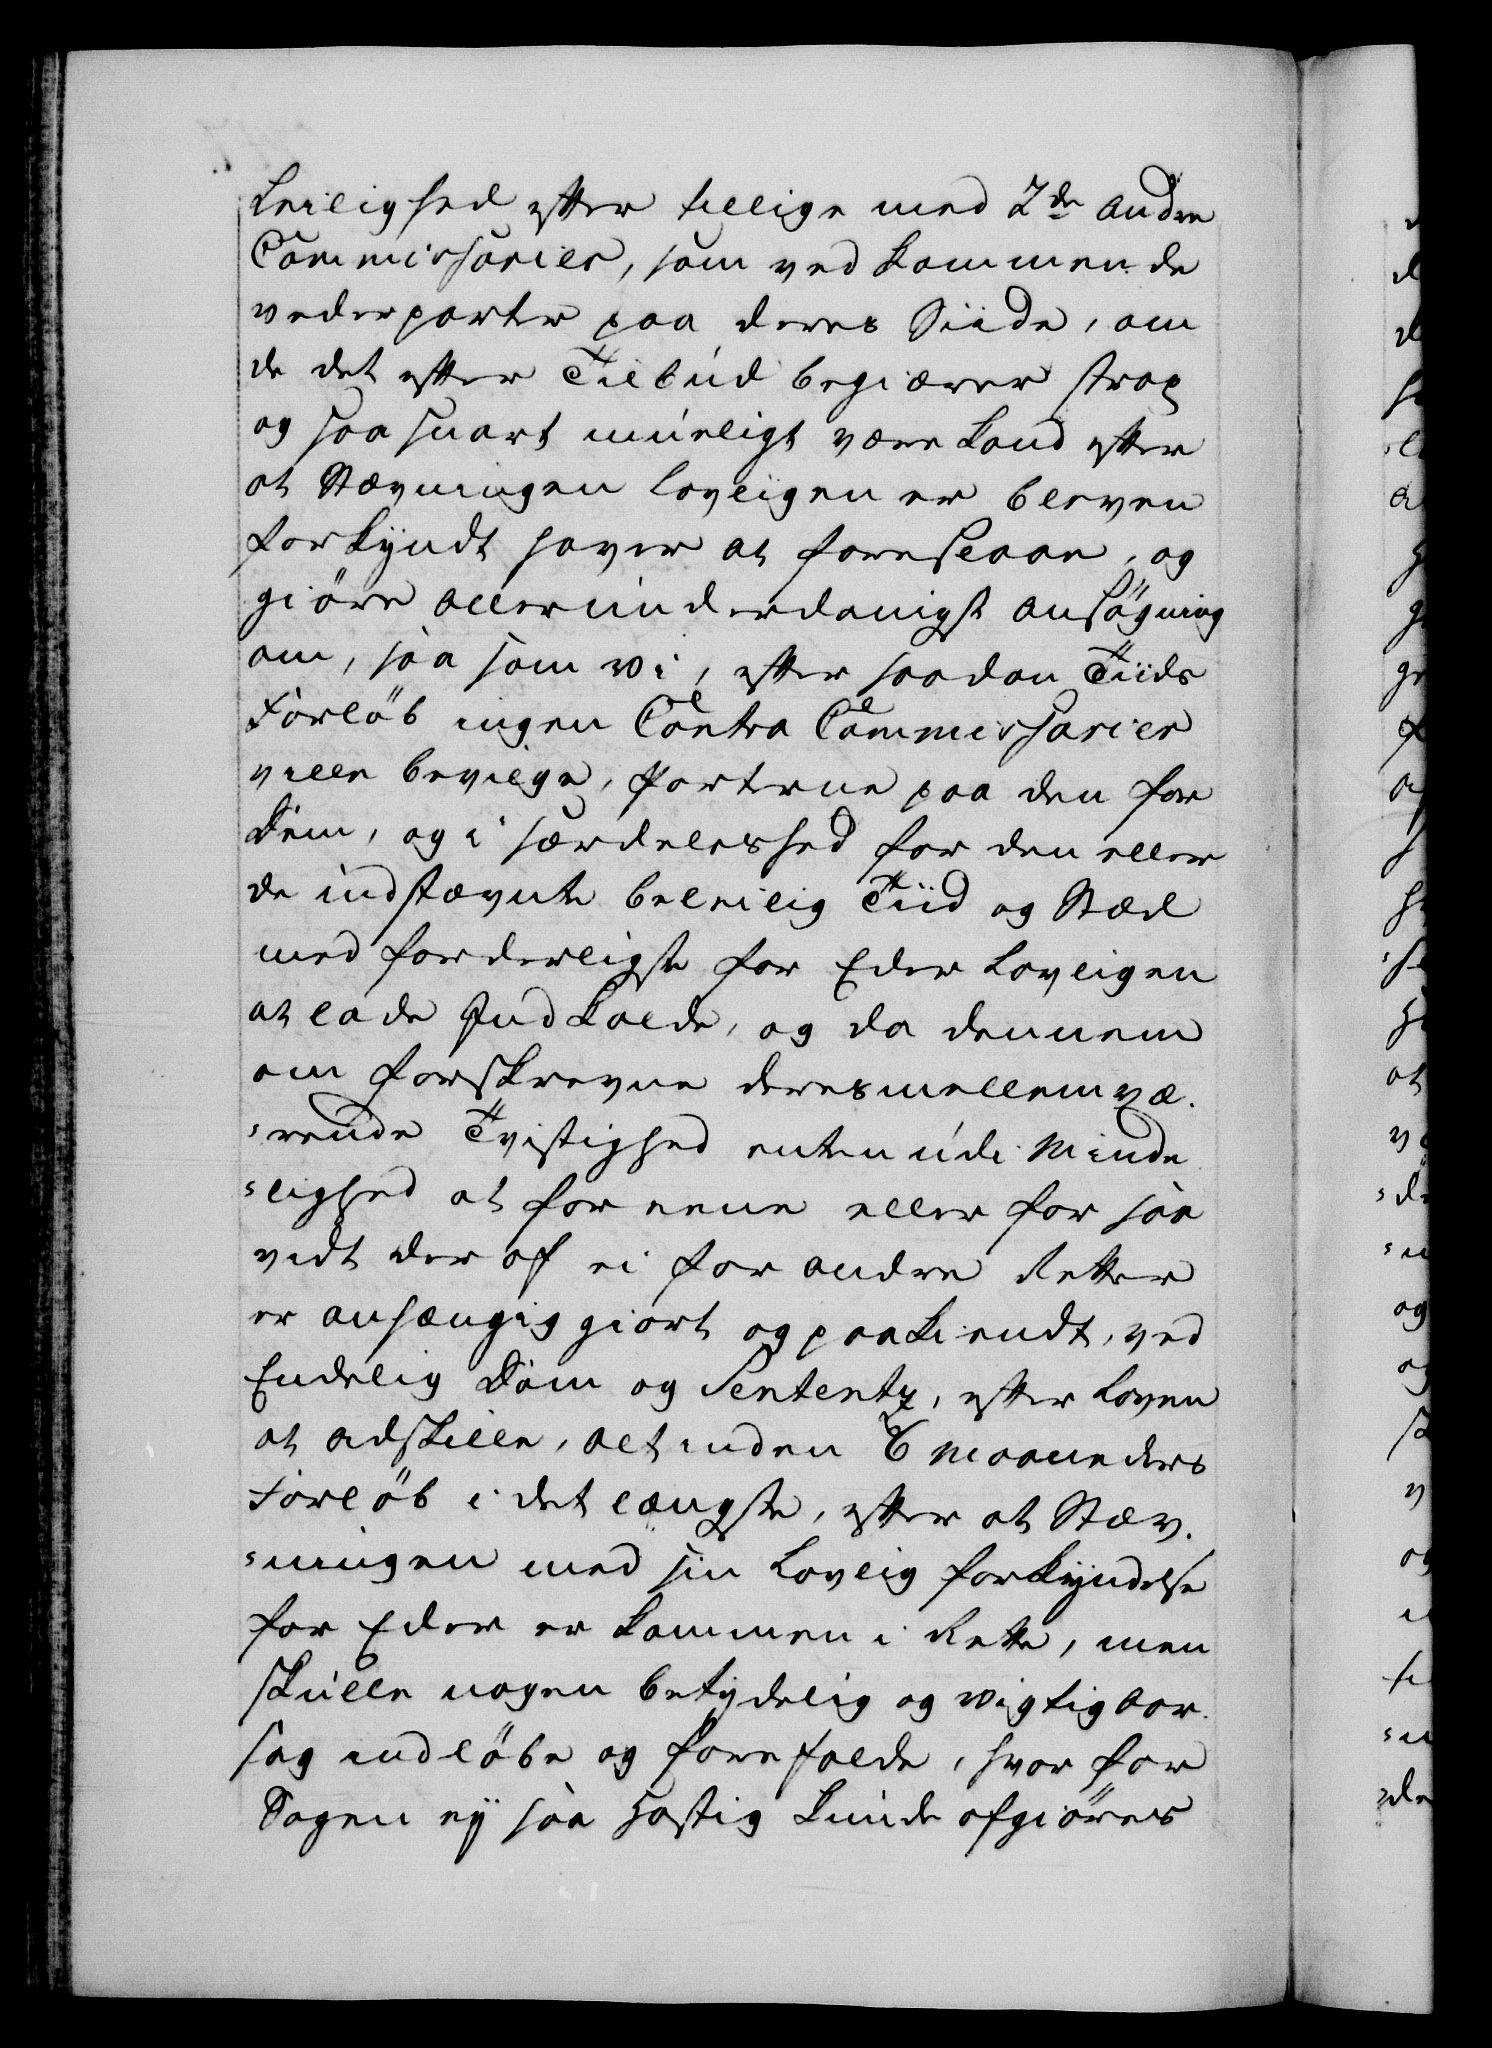 Leilighed efter tillige med 2de andre
Commissarier, som ved kommende
vederparter paa deres Siide, om
de det efter Tilbud begiærer strax
og saa snart mueligt være kand efter
at Stævningen lovligen er bleven
forkyndt haver at foreslaae, og
giöre allerunderdanigst ansögning
om, saa som vi, efter saadan Tiids
Forlöb ingen Contra Commissarier
ville bevilge, Parterne paa den for
Dem, og i særdeleshed for den eller
de indstævnte beleilig Tiid og Stæd
med forderligste for Eder lovligen
at lade Indkalde, og da dennem
om forskrevne deres mellem væ-
-rende Tvistighed enten udi Minde
-lighed at foreene eller for saa
vidt der af ei for andre Retter
er anhængig giort og paakiendt, ved
Endelig Dom og Sententz, efter loven
at adskille, alt inden 6 Maaneders
Forlöb i det længste, efter at Stæv-
-ningen med sin lovlig forkyndelse
for Eder er kommen i Rette, men
skulle nogen betydelig og vigtig aar-
sag indlöbe og forefalde, hvor for
Sagen ey saa hastig kunde afgiöres